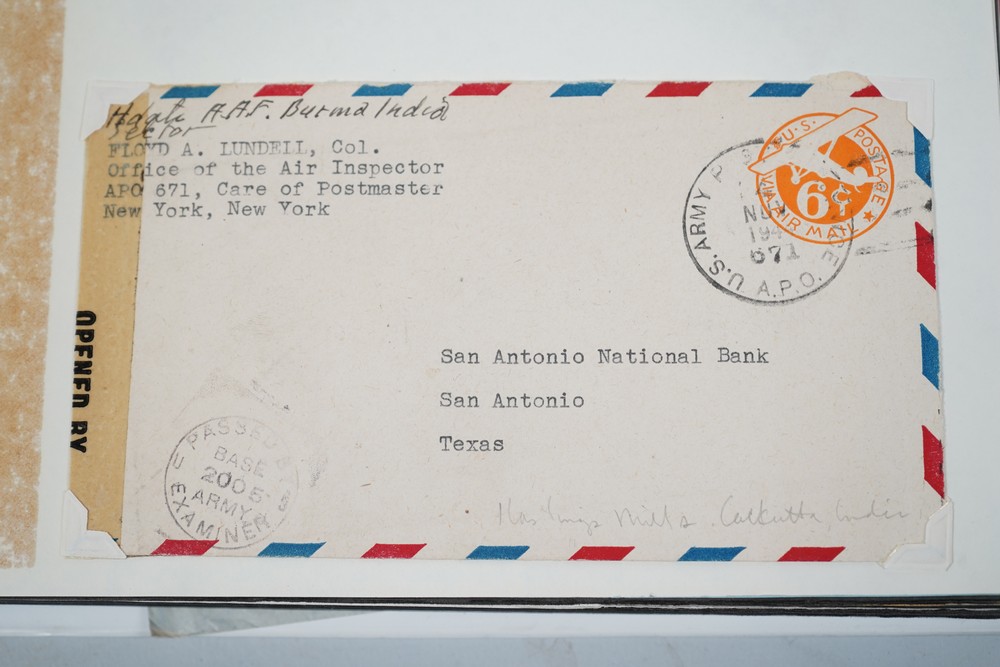 Hdqts A.A.F. Burma India
Sector
FLOYD A. LUNDELL, Col.
Office of the Air Inspector
APO 671, Care of Postmaster
New York, New York
U.S. POSTAGE
6¢
VIA AIR MAIL
U.S. ARMY
A.P.O.
671
OPENED BY
San Antonio National Bank
San Antonio
Texas
PASSED
BASE
2005
ARMY
EXAMINER
Hastings Mills. Calcutta, India